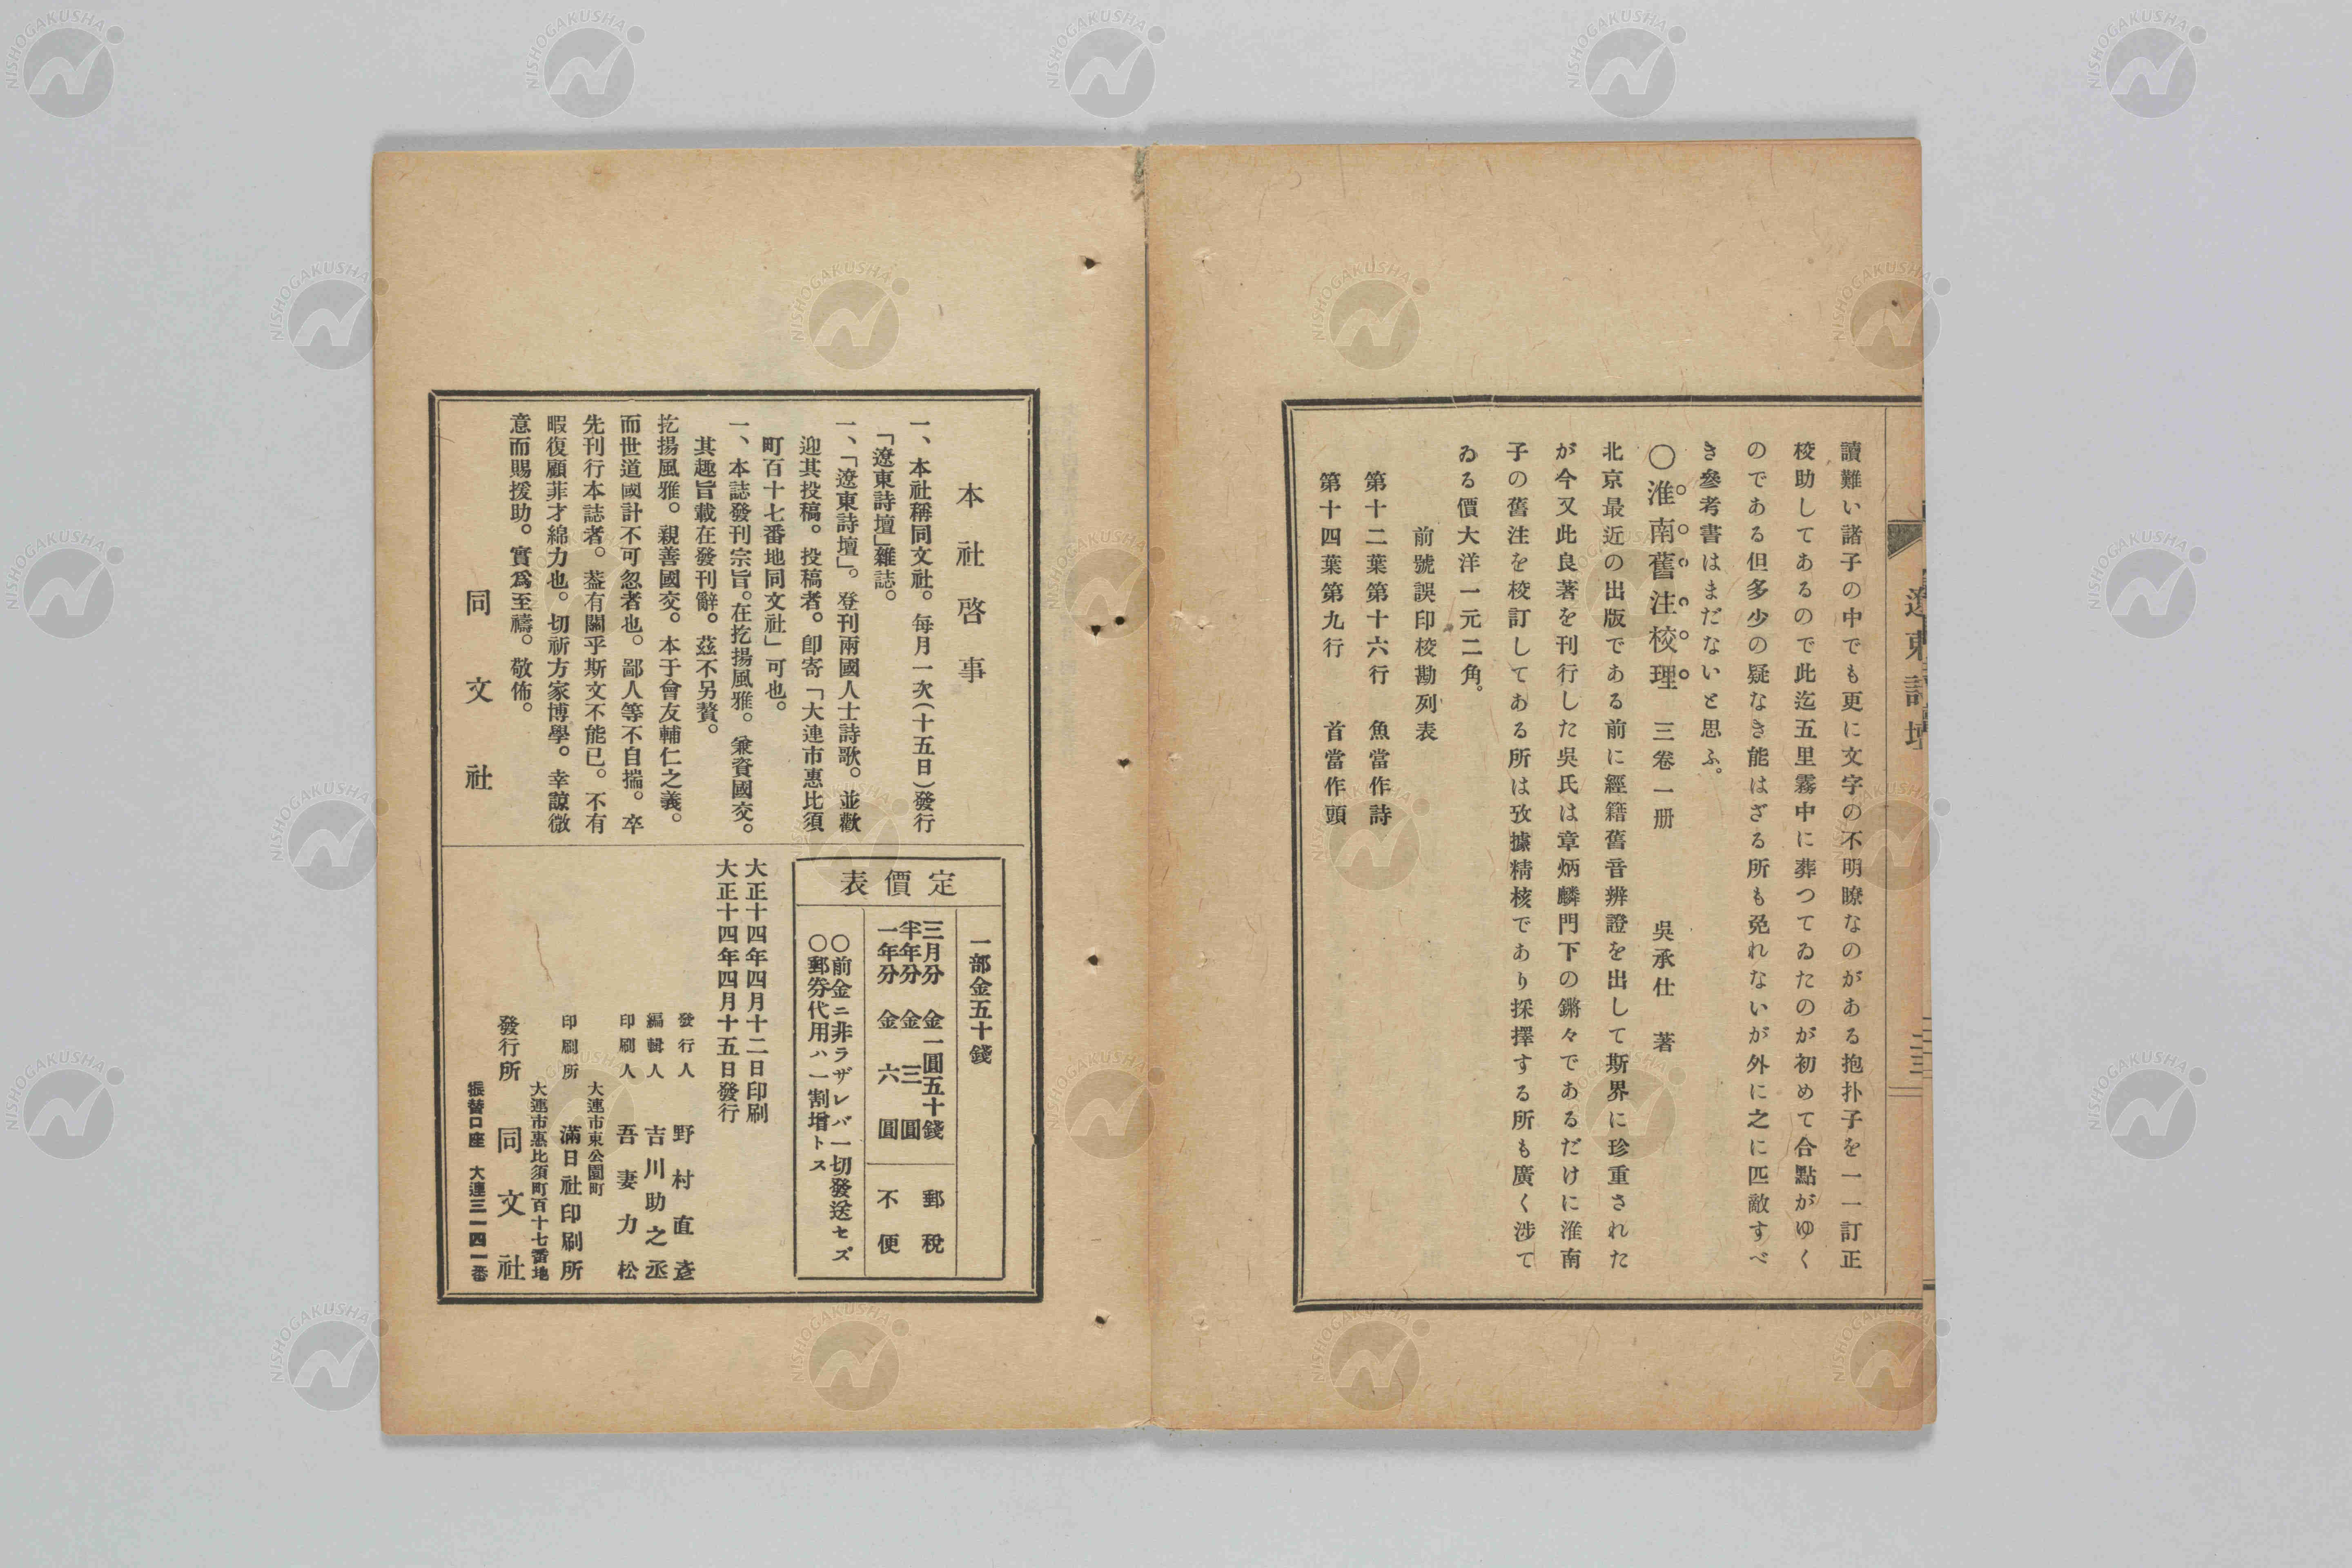 遼東詩壇
讀難い諸子の中でも更に文字の不明瞭なのがある抱扑子を一一訂正
校助してあるので此迄五里霧中に葬つてゐたのが初めて合點がゆく
のである但多少の疑なき能はざる所も免れないが外に之に匹敵すべ
き參考書はまだないと思ふ。
○淮南舊注校理 三卷一册 吳承仕 著
北京最近の出版である前に經籍舊音辨證を出して斯界に珍重された
が今又此良著を刊行した吳氏は章炳麟門下の鏘々であるだけに淮南
子の舊注を校訂してある所は攷據精核であり採擇する所も廣く涉て
ゐる價大洋一元二角。
前號誤印校勘列表
第十二葉第十六行 魚當作詩
第十四葉第九行 首當作頭
本社啓事
一、本社稱同文社。每月一次(十五日)發行
「遼東詩壇」雜誌。
一、「遼東詩壇」。登刊兩國人士詩歌。並歡
迎其投稿。投稿者。卽寄「大連市惠比須
町百十七番地同文社」可也。
一、本誌發刊宗旨。在扢揚風雅。兼資國交。
其趣旨載在發刊辭。茲不另贅。
扢揚風雅。親善國交。本于會友輔仁之義。
而世道國計不可忽者也。鄙人等不自揣。卒
先刊行本誌者。葢有關乎斯文不能已。不有
暇復顧菲才綿力也。切祈方家博學。幸諒微
意而賜援助。實爲至禱。敬佈。
同文社
定價表
一部金五十錢
三月分 金一圓五十錢 郵稅
半年分 金三圓
一年分 金六圓 不便
○前金ニ非ラザレバ一切發送セズ
○郵券代用ハ一割增トス
大正十四年四月十二日印刷
大正十四年四月十五日發行
發行人 野村直彥
編輯人 吉川助之丞
印刷人 吾妻力松
大連市東公園町
印刷所 滿日社印刷所
大連市惠比須町百十七番地
發行所 同文社
振替口座 大連三一四一番
NISHOGAKUSHA